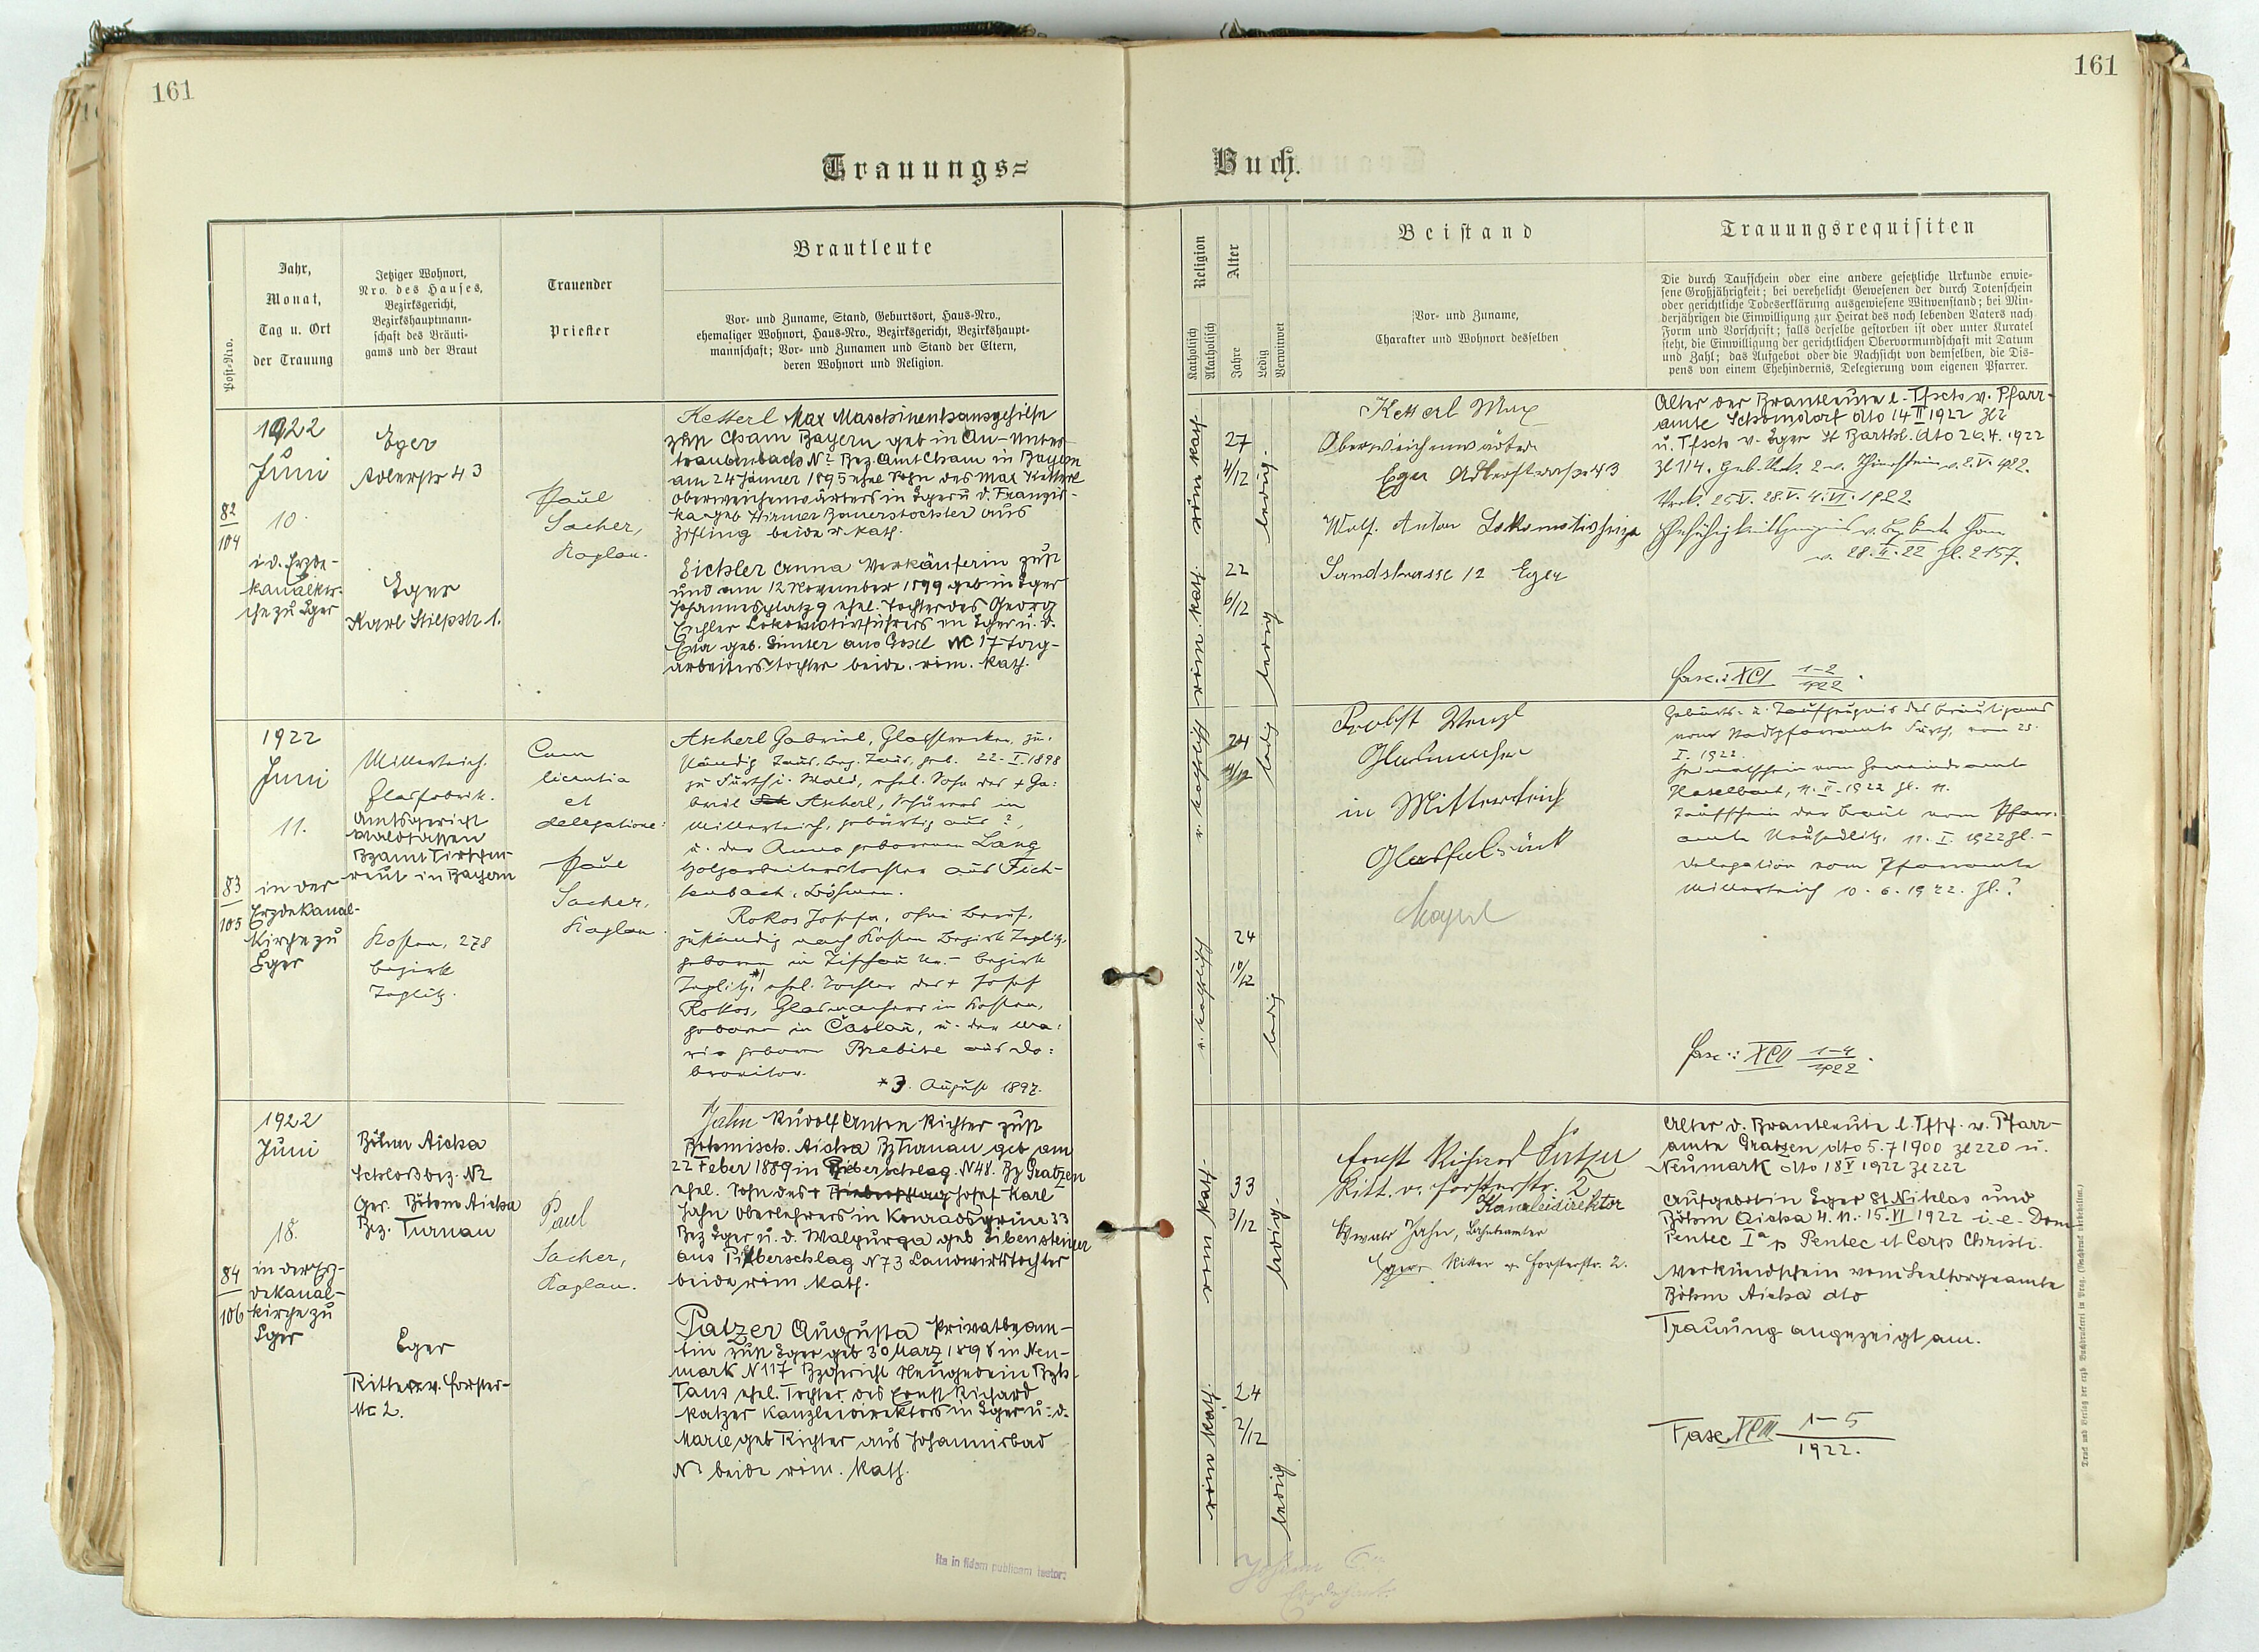 161
161
Trauungs=
Buch.
Post-Nro.
Jahr,
Monat,
Tag u. Ort
der Trauung
Jetziger Wohnort,
Nro. des Hauses,
Bezirksgericht,
Bezirkshauptmann-
schaft des Bräuti-
gams und der Braut
Trauender
Priester
Brautleute
Vor- und Zuname, Stand, Geburtsort, Haus-Nro.,
ehemaliger Wohnort, Haus-Nro., Bezirksgericht, Bezirkshaupt-
mannschaft; Vor- und Zunamen und Stand der Eltern,
deren Wohnort und Religion.
Religion
Katholisch
Akatholisch
Alter
Jahre
Ledig
Verwitwet
Beistand
Vor- und Zuname,
Charakter und Wohnort desselben
Trauungsrequisiten
Die durch Taufschein oder eine andere gesetzliche Urkunde erwie-
sene Großjährigkeit; bei verehelicht Gewesenen der durch Totenschein
oder gerichtliche Todeserklärung ausgewiesene Witwenstand; bei Min-
derjährigen die Einwilligung zur Heirat des noch lebenden Vaters nach
Form und Vorschrift; falls derselbe gestorben ist oder unter Kuratel
steht, die Einwilligung der gerichtlichen Obervormundschaft mit Datum
und Zahl; das Aufgebot oder die Nachsicht von demselben, die Dis-
pens von einem Ehehindernis, Delegierung vom eigenen Pfarrer.
82
104
1922
Juni
10.
i. d. Erzde-
kanalkir-
che zu Eger
Eger
Adlerstr 43
Eger
Karl Stilpstr 1.
Paul
Sacher,
Kaplan.
Ketterl Max Maschinenhausgehilfe
zust Cham Bayern geb in Au-Unter-
traubenbach No Bez. Amt Cham in Bayern
am 24 Jänner 1895 ehel Sohn des Max Ketterl
Oberweichenwärters in Eger u. d. Franzis-
ka geb Hirmer Bauerstochter aus
Zifling beide r. kath.
Eichler Anna Verkäuferin zust
und am 12 November 1899 geb in Eger
Johannesplatz 9 ehel. Tochter des Georg
Eichler Lokomotivführers in Eger u. d.
Eva geb. Günter aus Gosel No 17 Tag-
arbeiterstochter beide röm. kath.
röm kath
27
4/12
ledig.
röm. kath.
22
6/12
ledig
Ketterl Max
Oberweichenwärter
Eger Adlerstrasse 43
Wolf Anton Lokomotivheizer
Sandstrasse 12 Eger
Alter der Brautleute l. Tfsch v. Pfarr-
amte Schorndorf dto 14 II 1922 Zl
u. Tfsch v. Eger St Barthl. dto 26.4. 1922
Zl 114.
Verk. 25 V. 28. V. 4. VI. 1922
v. 28. II. 22 Zl. 2157.
fasc.: XCI 1-2
1922
83
105
1922
Juni
11.
in der
Erzdekanal-
Kirche zu
Eger
Mitterteich.
Glasfabrik.
Amtsgericht
Waldsassen
Bzamt Tirschen-
reut in Bayern
Kosten, 278
Bezirk
Teplitz.
Cum
licentia
et
delegatione:
Paul
Sacher,
Kaplan.
Ascherl Gabriel, Glasstrecker, zu-
ständig Taus, Bez. Taus, geb. 22. I. 1898
zu Fürth i. Wald, ehel. Sohn des + Ga-
briel Ascherl, Schürers in
Mitterteich, gebürtig aus ?,
u. der Anna geborenen Lang
Holzarbeiterstochter aus Fich-
tenbach, Böhmen.
Rokos Josefa, ohne Beruf,
zuständig nach Kosten Bezirk Teplitz,
geboren in Tischau No. - Bezirk
Teplitz, *) ehel. Tochter des + Josef
Rokos, Glasmachers in Kosten,
geboren in Časlau, u. der Ma-
ria geboren
* 3. August 1897.
r. katholisch
24
4/12
ledig
r. katholisch
24
10/12
ledig
Probst Wenzl
Glasmacher
in Mitterteich
Glasfabrik
Geburts- u. Taufzeugnis des Bräutigams
vom Stadtpfarramte Fürth, vom 25.
I. 1922.
Heimatschein vom Gemeindeamte
Haselbach, 11. II. 1922 Zl. 11.
Taufschein der Braut vom Pfarr-
amte 11. I. 1922 Zl. -
Delegation vom Pfarramte
Mitterteich 10. 6. 1922. Zl. ?
fasc.: XCII 1-4
1922
84
106
1922
Juni
18.
in der Erz-
dekanal-
kirche zu
Eger
Böhm Aicha
Schloßbez. No 2
Ger. Böhm Aicha
Bez. Turnau
Eger
Ritter v. Forster-
str 2.
Paul
Sacher,
Kaplan.
Jahn Rudolf Anton Richter zust
Böhmisch. Aicha Bz Turnau geb am
22 Feber 1889 in Piberschlag. N 48. Bz Gratzen
ehel. Sohn des Josef Karl
Jahn Oberlehrers in Konradsgrün 33
Bez Eger u. d. Walpurga geb Libensteiner
aus Piberschlag N 73 Landwirtstochter
beide röm kath.
Patzer Augusta Privatbeam-
tin zust Eger geb 30 März 1898 in Neu-
mark N 117 Bzgericht Neugedein Bzh
Taus ehel. Tochter des Ernst Richard
Patzer Kanzleidirektors in Eger u. d.
Marie geb Richter aus Johannisbad
No beide röm. kath.
röm kath.
33
3/12
ledig.
röm kath.
24
2/12
ledig.
Ernst Richard Patzer
Ritt. v. Forsterstr. 2
Kanzleidirektor
Ewald Jahn, Bahnbeamter
Eger Ritter v. Forsterstr. 2.
Alter d. Brautleute l. Tfsch. v. Pfarr-
amte Gratzen dto 5.7 1900 Zl 220 u.
Neumark dto 18 V 1922 Zl 222
Aufgebot in Eger St Niklas und
Böhm Aicha 4. 11. 15. VI 1922 i. e. Dom
Pentec Ia p Pentec et Corp Christi.
Verkündschein vom Seelsorgeamte
Böhm Aicha dto
Trauung angezeigt am.
Fasc. XCIII 1-5
1922.
Ita in fidem publicam testor:
Druck und Verlag der erzb. Buchdruckerei in Prag. (Nachdruck vorbehalten.)